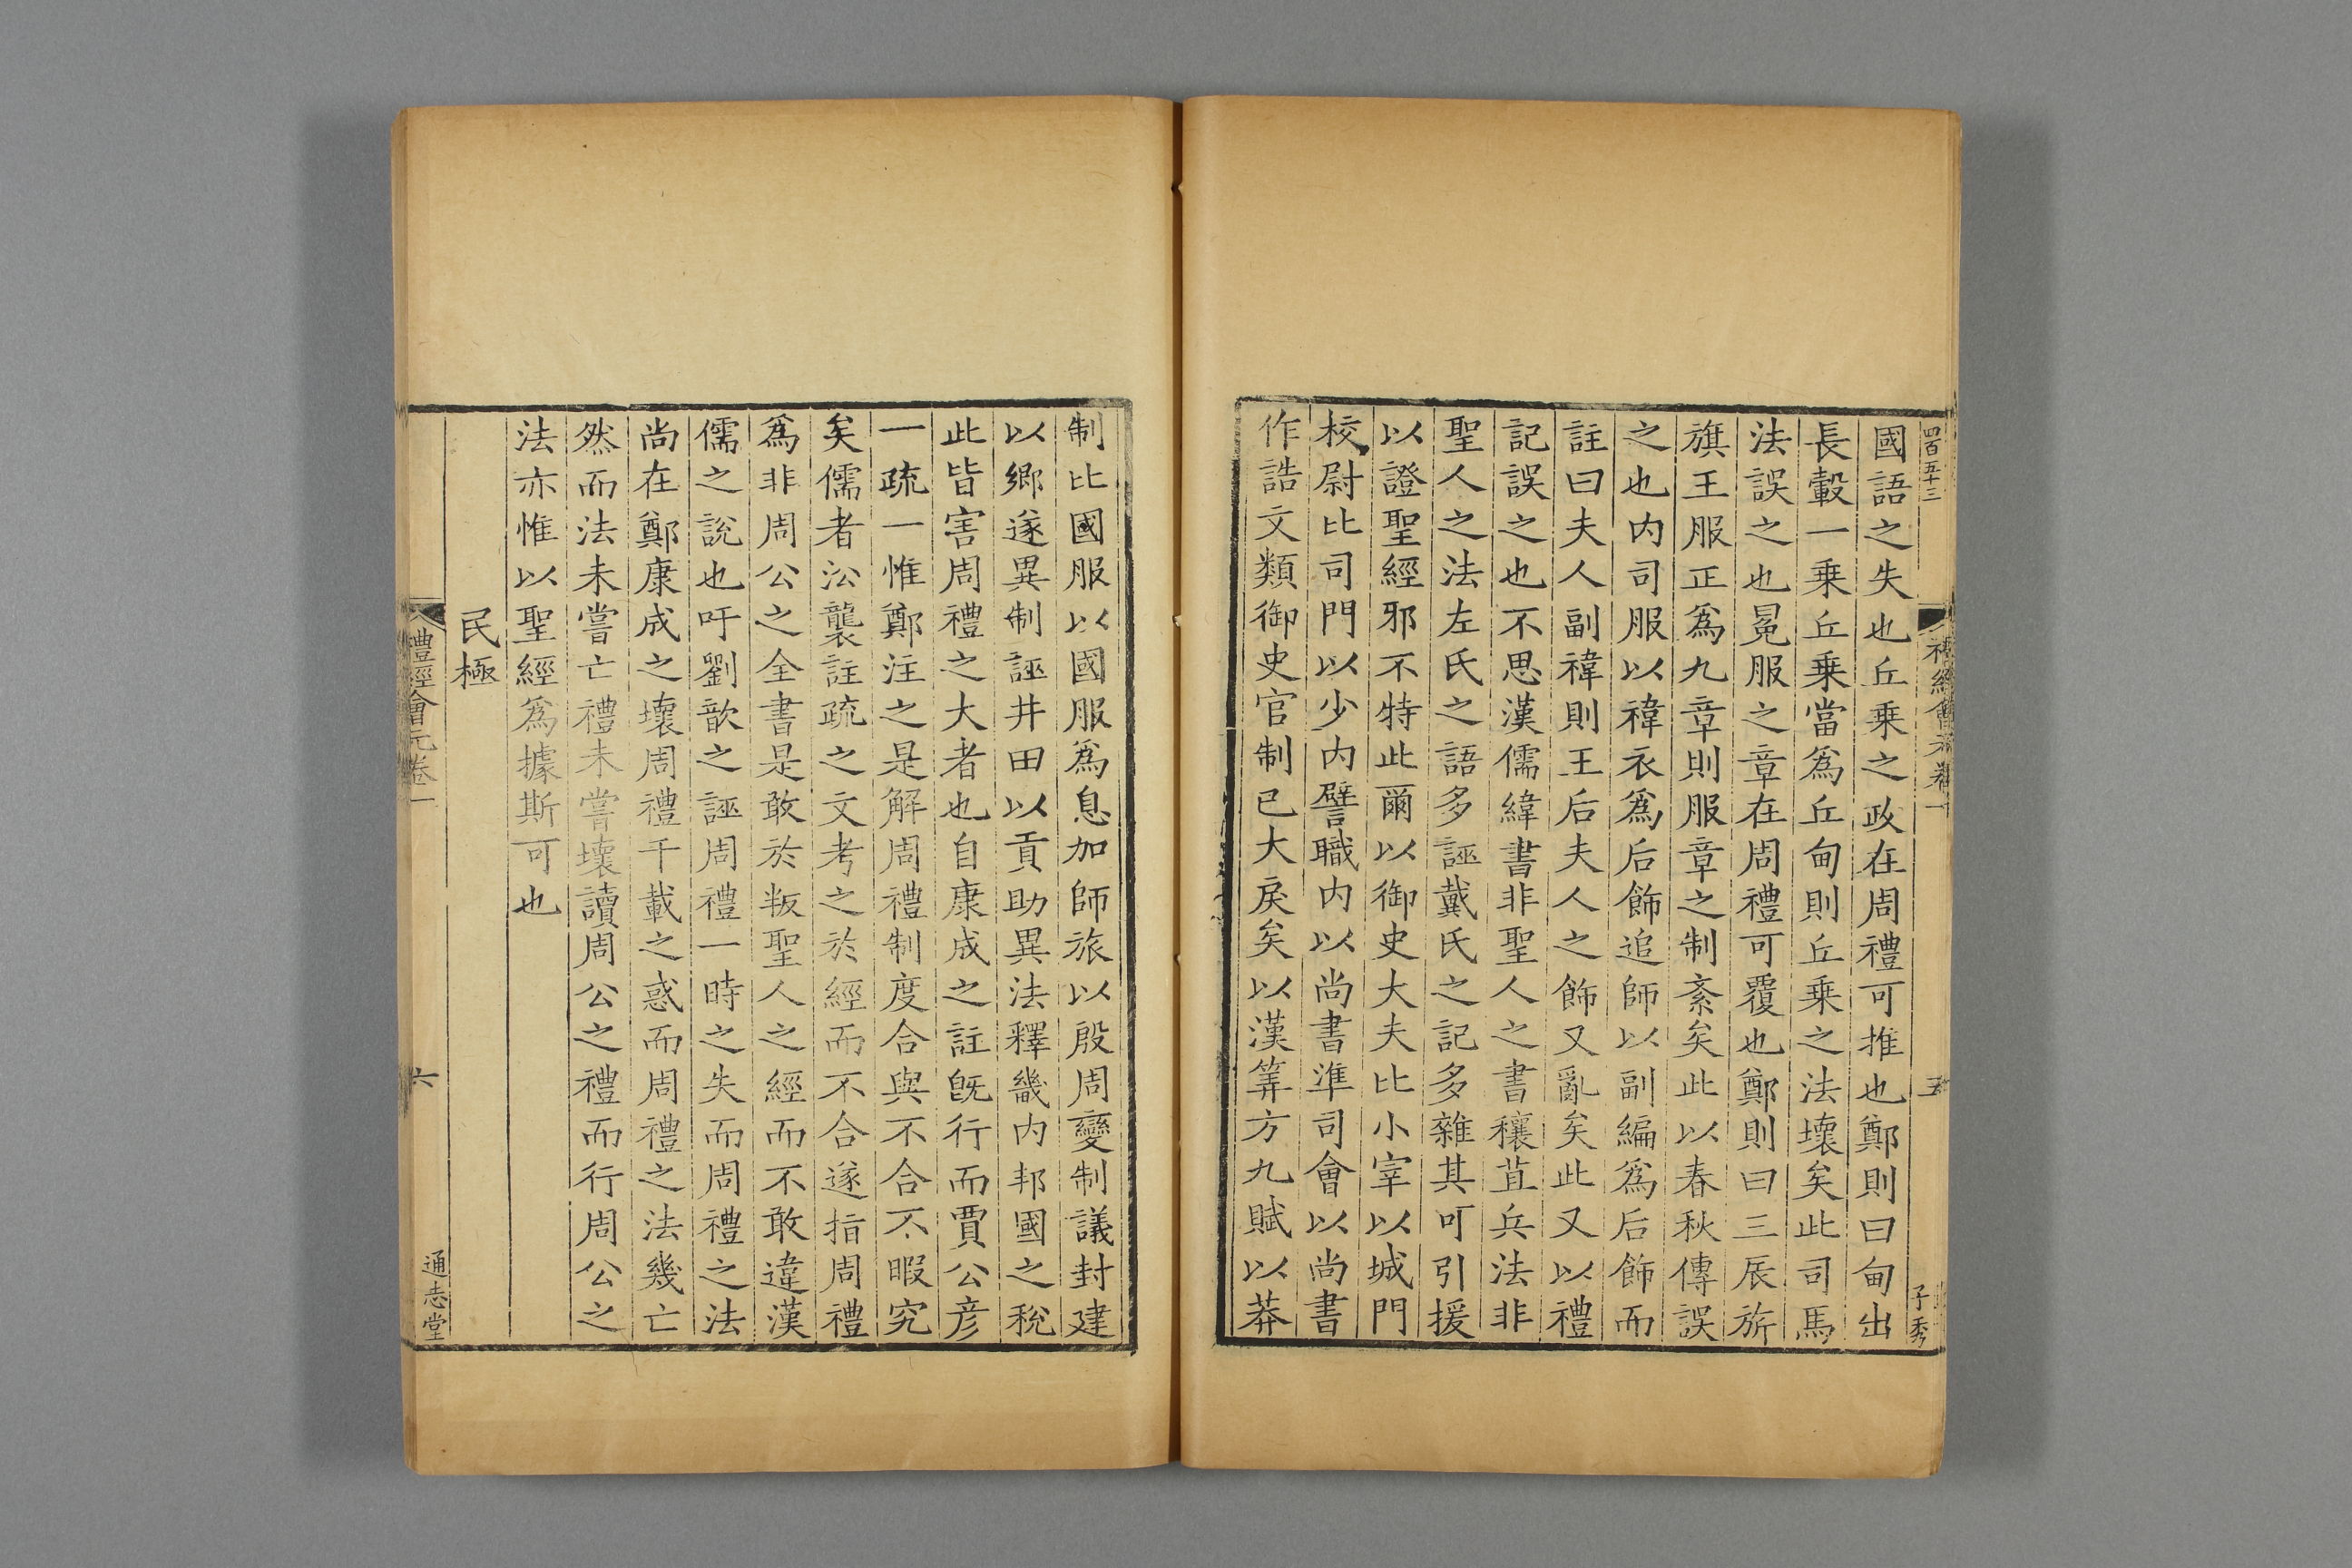 四百五十三
禮經會元卷一
五
子秀
國語之失也丘乗之政在周禮可推也鄭則曰甸出
長轂一乗丘乗當爲丘甸則丘乗之法壞矣此司馬
法誤之也冕服之章在周禮可覆也鄭則曰三辰旂
旗王服正爲九章則服章之制紊矣此以春秋傳誤
之也内司服以褘衣爲后飾追師以副編爲后飾而
註曰夫人副褘則王后夫人之飾又亂矣此又以禮
記誤之也不思漢儒緯書非聖人之書穰苴兵法非
聖人之法左氏之語多誣戴氏之記多雜其可引援
以證聖經邪不特此爾以御史大夫比小宰以城門
校尉比司門以少内譬職内以尚書準司會以尚書
作誥文類御史官制已大戾矣以漢筭方九賦以莽
制比國服以國服爲息加師旅以殷周變制議封建
以鄉遂異制誣井田以貢助異法釋畿内邦國之稅
此皆害周禮之大者也自康成之註旣行而賈公彦
一疏一惟鄭注之是解周禮制度合與不合不暇究
矣儒者沿襲註疏之文考之於經而不合遂指周禮
爲非周公之全書是敢於叛聖人之經而不敢違漢
儒之說也吁劉歆之誣周禮一時之失而周禮之法
尚在鄭康成之壞周禮千載之惑而周禮之法幾亡
然而法未嘗亡禮未嘗壞讀周公之禮而行周公之
法亦惟以聖經爲據斯可也
民極
禮經會元卷一
六
通志堂